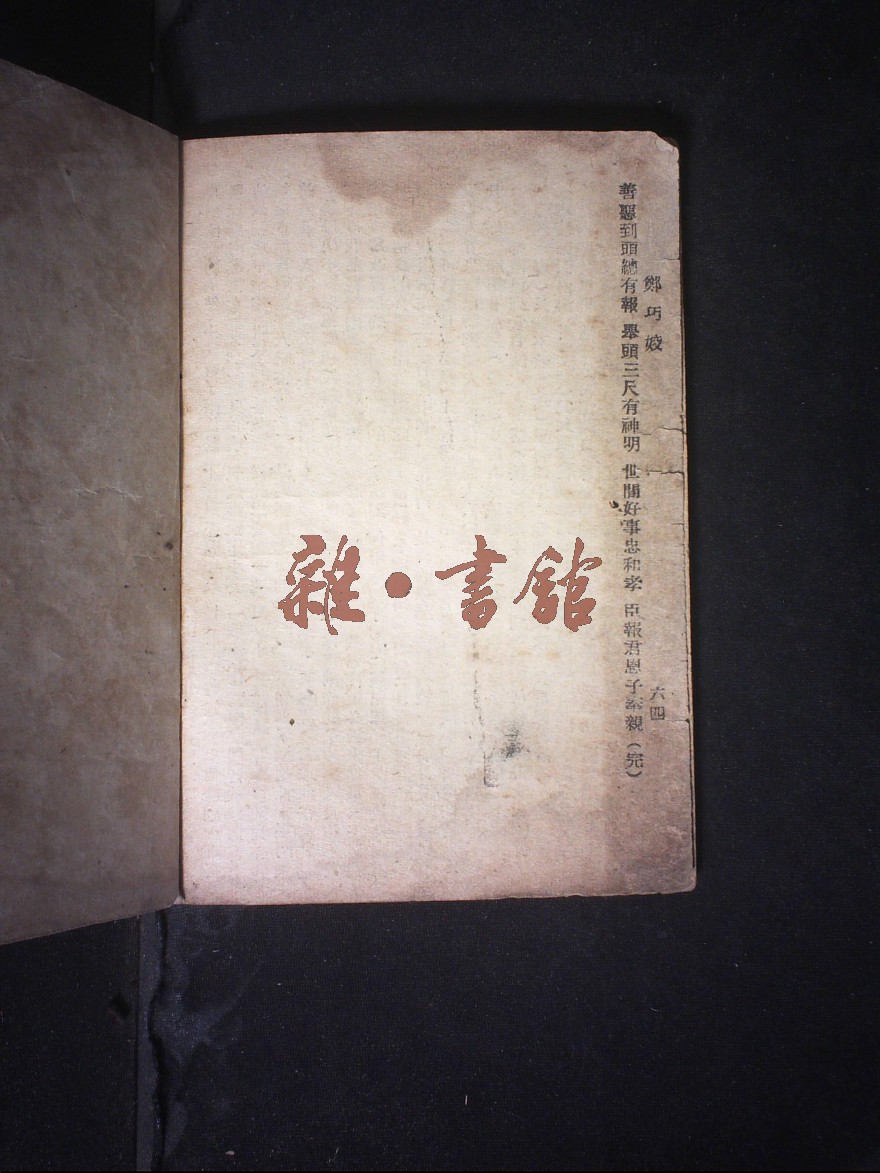 鄭巧姣
六四
善惡到頭總有報 舉頭三尺有神明 世間好事忠和孝 臣報君恩子孝親(完)
雜·書館